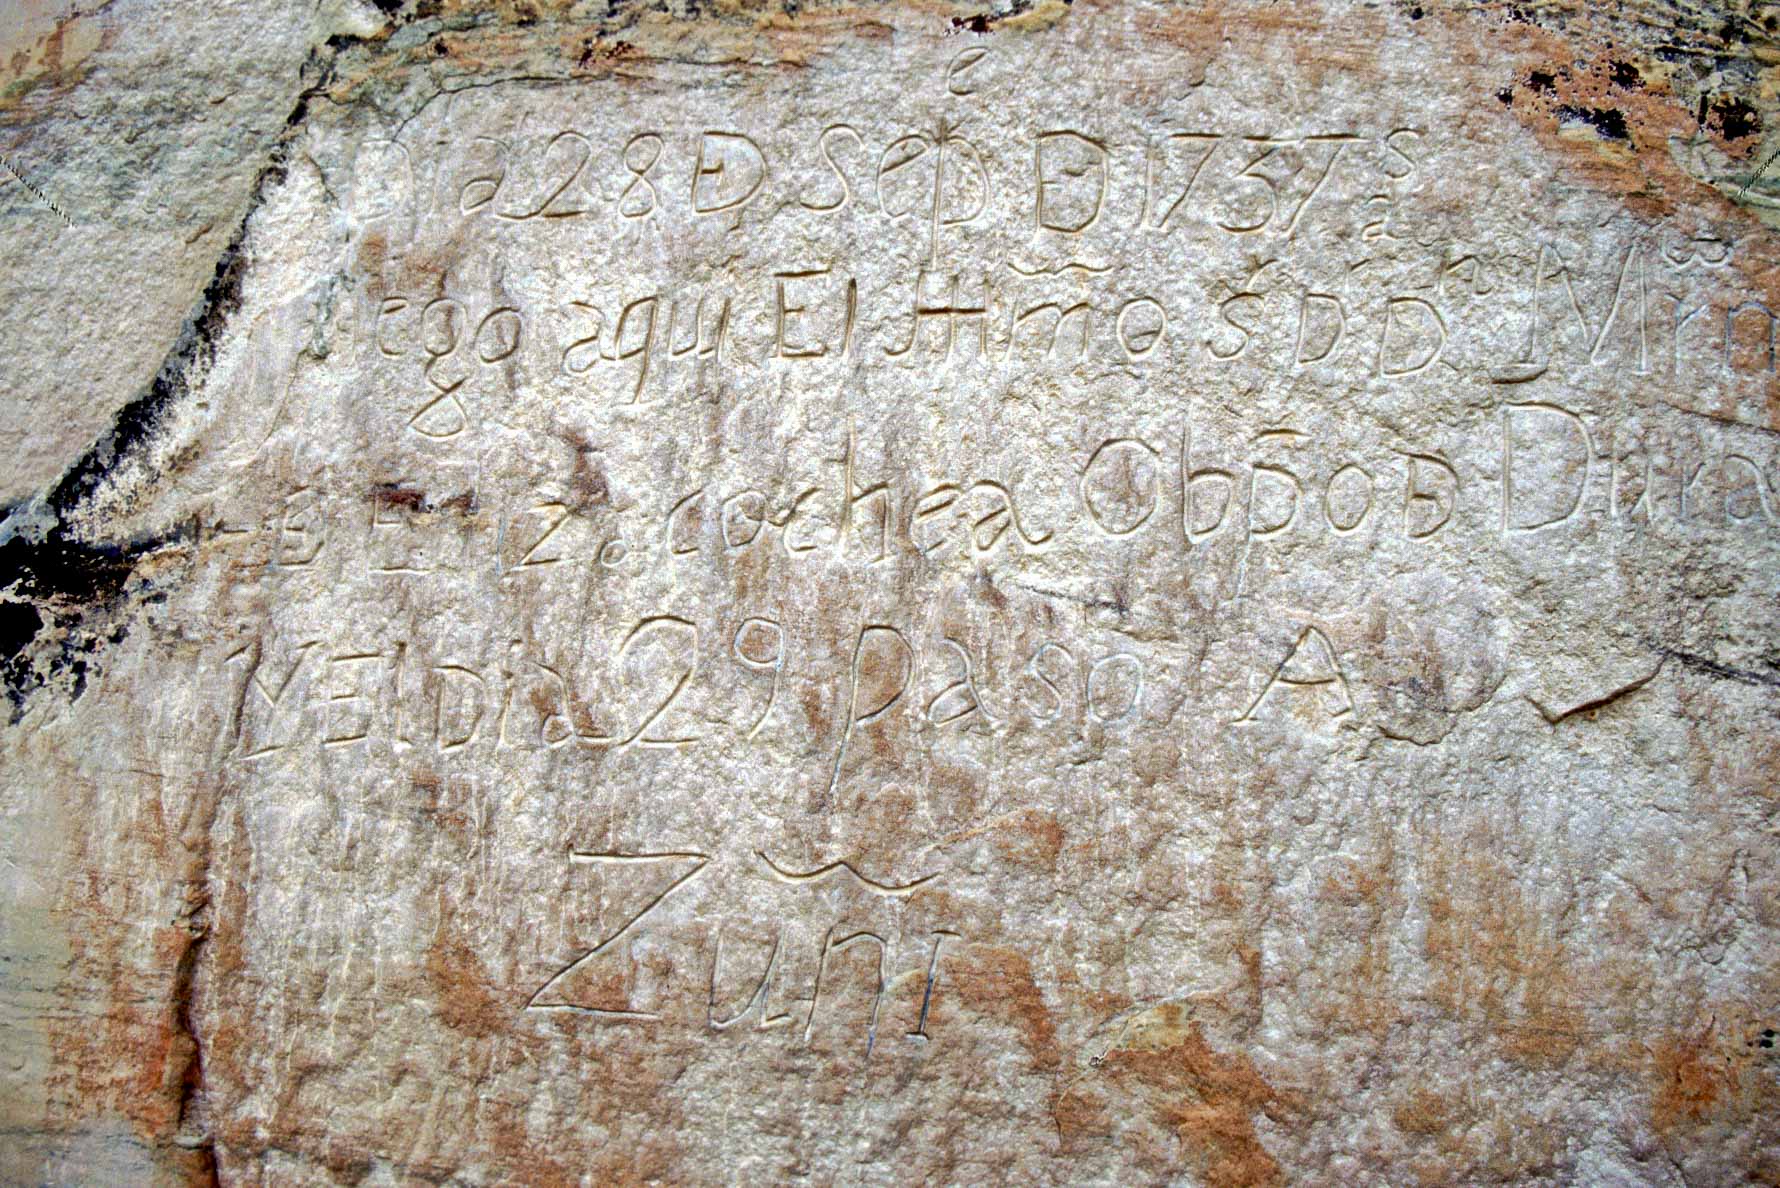 Dia 28 Đ Sepᵉ Đ 1737 aˢ
llego aqui El Illm̃o Sʳ Dʳ Dⁿ Mrn
Đ Elizacochea Obp̄o đ Dura
Y El Dia 29 paso A
Zuñi